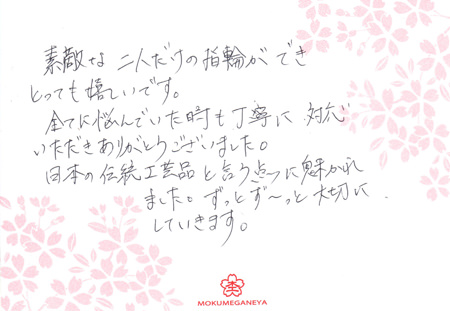 素敵な 二人だけの指輪ができ
とっても嬉しいです。
全てに悩んでいた時も丁寧に 対応
いただきありがとうございました。
日本の伝統工芸品と言う点に魅かれ
ました。ずっとず〜っと大切に
していきます。
MOKUMEGANEYA